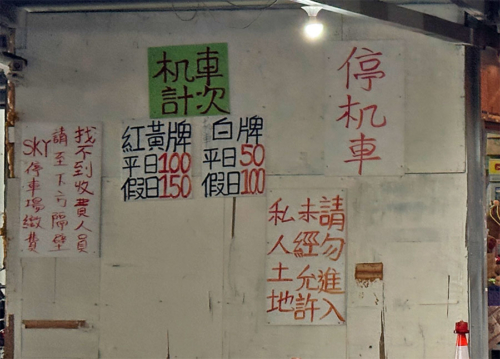 机車
計次
紅黃牌
平日100
假日150
白牌
平日50
假日100
停机車
找不到收費人員
請至下方隔壁
SKY停車場繳費
私人土地
未經允許
請勿進入